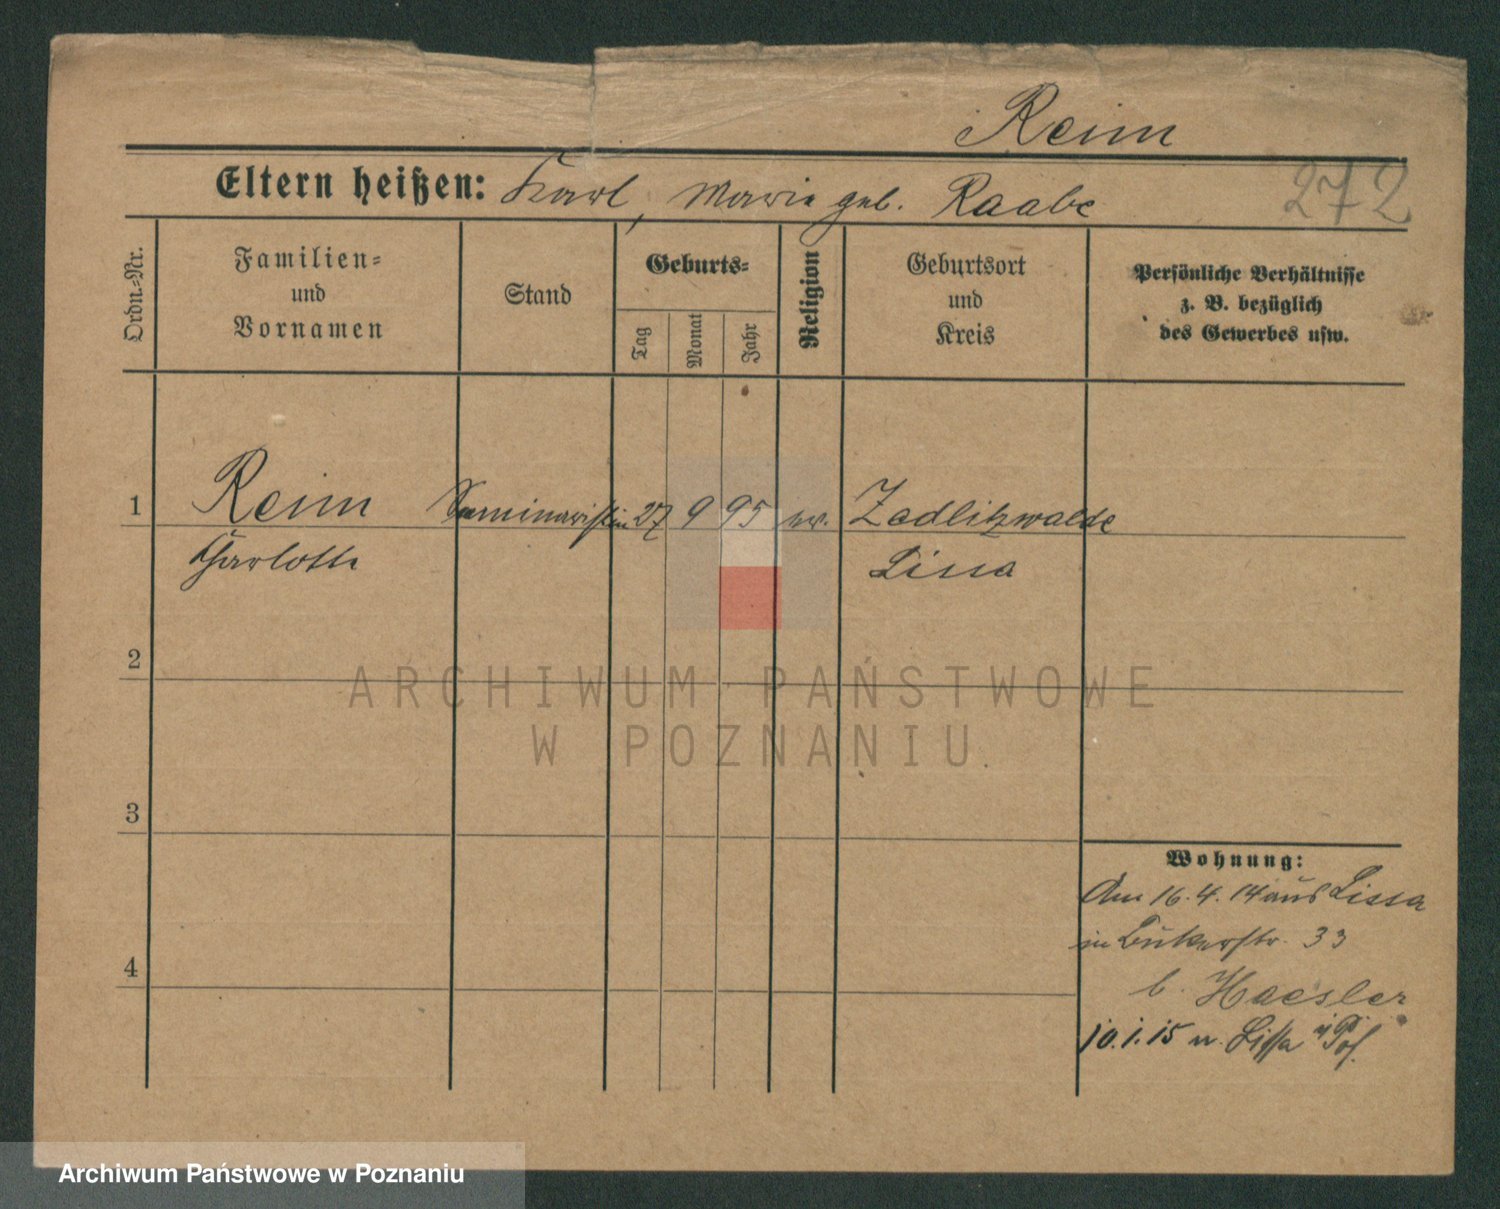 Reim
272
Eltern heißen: Karl, Marie geb. Raabe
Ordn.-Nr.
Familien-
und
Vornamen
Stand
Geburts-
Tag
Monat
Jahr
Religion
Geburtsort
und
Kreis
Persönliche Verhältnisse
z. B. bezüglich
des Gewerbes usw.
1 Reim Seminaristin 27 9 95 ev. Zedlitzwalde
Charlotte Lissa
2
ARCHIWUM PAŃSTWOWE
W POZNANIU
3
Wohnung:
Am 16.4.14 aus Lissa
in Bukerstr. 33
b. Haesler
4
10.1.15 n. Lissa i/Pos.
Archiwum Państwowe w Poznaniu